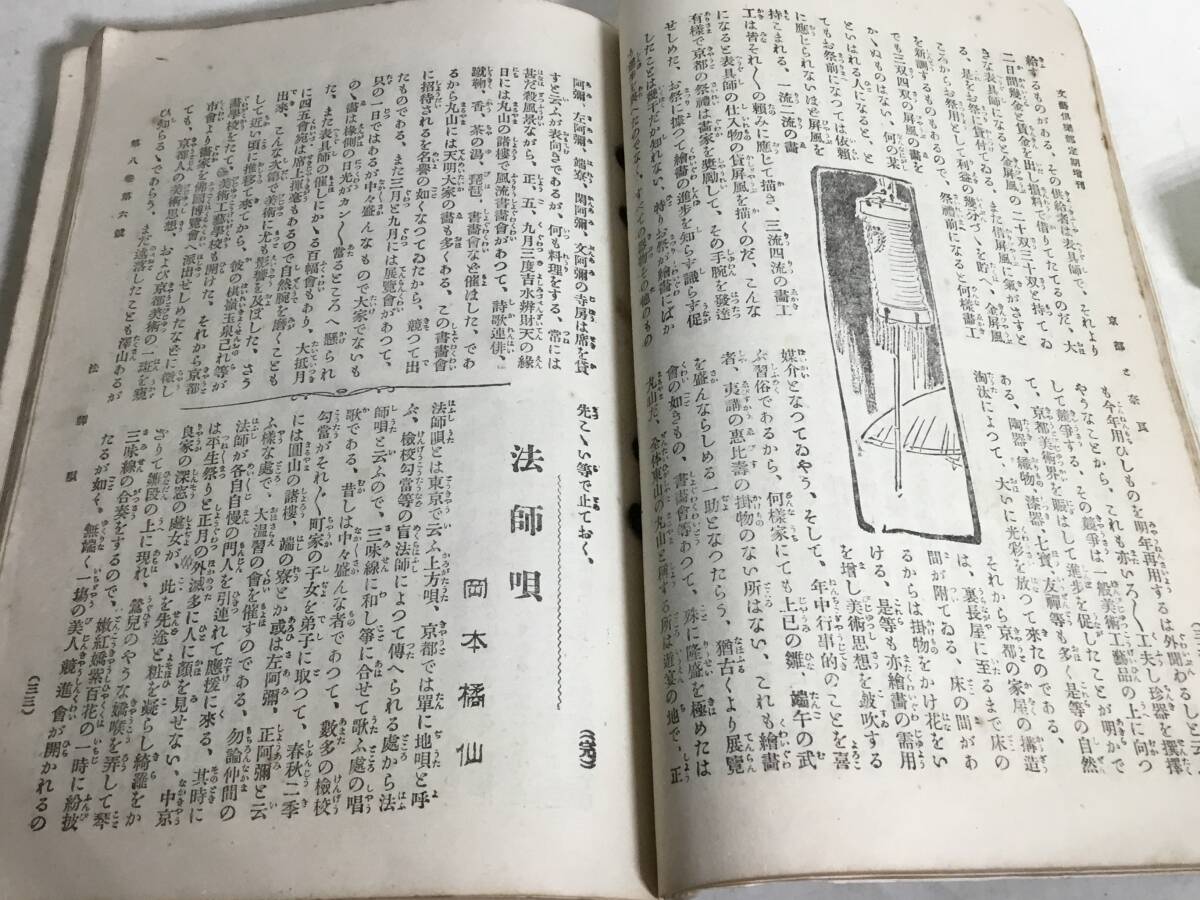 文藝倶樂部定期增刊
京都と奈良
給するものがある、その供給者は表具師で、それより
二日間幾金と貸金を出し損料で借りてたてるのだ、大
きな表具師になると金屏風の二十双三十双と持てゐ
る、是をお祭用として利益の幾分づゝを貯へ、金屏風
を新調するものもあるので、祭前になると何樣畫工
でも三双四双の屏風の畫
かゝぬものはない、何の某
といはれる人になると、と
てもお祭前になつては依頼
に應じられないほど屏風を
持こまれる、一流二流の畫
工は皆それ〳〵の頼みに應じて描き、三流四流の畫工
になると表具師の仕入物の貸屏風を描くのだ、こんな
有樣で京都の祭禮は畫家を奬勵して、その手腕を發達
せしめた、お祭に據つて繪畫の進步を知らず識らず促
したことは幾干だか知れない、特りお祭が繪畫にばか
も今年用ひしものを明年再用するは外聞わるしと
やうなことから、これも亦いろ〳〵工夫し珍器を選擇
して競爭する、その競爭は一般美術工藝品の上に向つ
て、京都美術界を賑はして進步を促したことが明かで
ある、陶器、織物、漆器、七寶、友禪等も多く是等の自然
淘汰によつて、大いに光彩を放つて來たのである。
それから京都の家屋の構造
は、裏長屋に至るまで床の
間が附てゐる、床の間があ
るからは掛物をかけ花をい
ける、是等も亦繪畫の需用
を增し美術思想を鼓吹する
媒介となつてゐやう、そして、年中行事的のことを喜
ぶ習俗であるから、何樣家にても上巳の雛、端午の武
者、夷講の惠比壽の掛物のない所はない、これも繪畫
を盛んならしめる一助となつたらう、猶古くより展覽
會の如きもの、書畫會等あつて、殊に隆盛を極めたは
丸山だ、全体東山の丸山と稱する所は遊宴の地で、正
阿彌、左阿彌、端寮、閑阿彌、文阿彌の寺房は席を貸
すと云ふが表向きであるが、何も料理をする、常には
甚だ殺風景ながら、正、五、九月三度吉水辨財天の緣
日には丸山の諸樓で風流書畫會があつて、詩歌連俳、
蹴鞠、香、茶の湯、琵琶、書畫會などを催ほした、であ
るから丸山には天明大家の畫も多くある、この書畫會
に招待されるを名譽の如くなつてゐたから、競つて出
たものである、また三月と九月には展覽會があつて、
只の一日ではあるが中々盛んなもので大家でないも
の、畫は椽側の日光がカン〳〵當るところへ懸られ
た、また表具師の催しにかゝる百幅會もあり、大抵月
に四五會宛は席上揮毫もあるので自然腕を磨くことも
出來、こんな大領で美術に尤い影響を及ぼした、さう
して近い頃に推移て來てから、彼の棋嶺玉泉己れ等が
畫學校をたて、美術工藝學校も開けた、それから京都
市會より畫家を佛國博覽會へ派出せしめたなどに徵し
ても、京都人の美術思想、および京都美術の一斑を窺
ひ知らるゝであらう、まだ遺落したことも澤山あるが
第八卷第六號
先こゝい等で止ておく、(完)
法師唄
岡本橘仙
法師唄とは東京で云ふ上方唄、京都では單に地唄と呼
ぶ、檢校勾當等の盲法師によつて傳へられる處から法
師唄と云ふので、三味線に和し箏に合せて歌ふ處の唱
歌である、昔しは中々盛んな者であつて、數多の檢校
勾當がそれ〳〵町家の子女を弟子に取つて、春秋二季
には圓山の諸樓、端の寮とか或は左阿彌、正阿彌と云
ふ樣な處で、大温習の會を催すのである、勿論仲間の
法師が各自自慢の門人を引連れて應援に來る、其時に
は平生祭りと正月の外滅多に人に顏を見せない、中京
良家の深窓の處女が、此を先途と粧を凝らし綺羅をか
ざりて雛段の上に現れ、鶯兒のやうな嬌喉を弄して琴
三味線の合奏をするので、嫩紅嬌紫百花の一時に紛披
たるが如く、無端く一塲の美人競進會が開かれるの
法師唄
(三三)